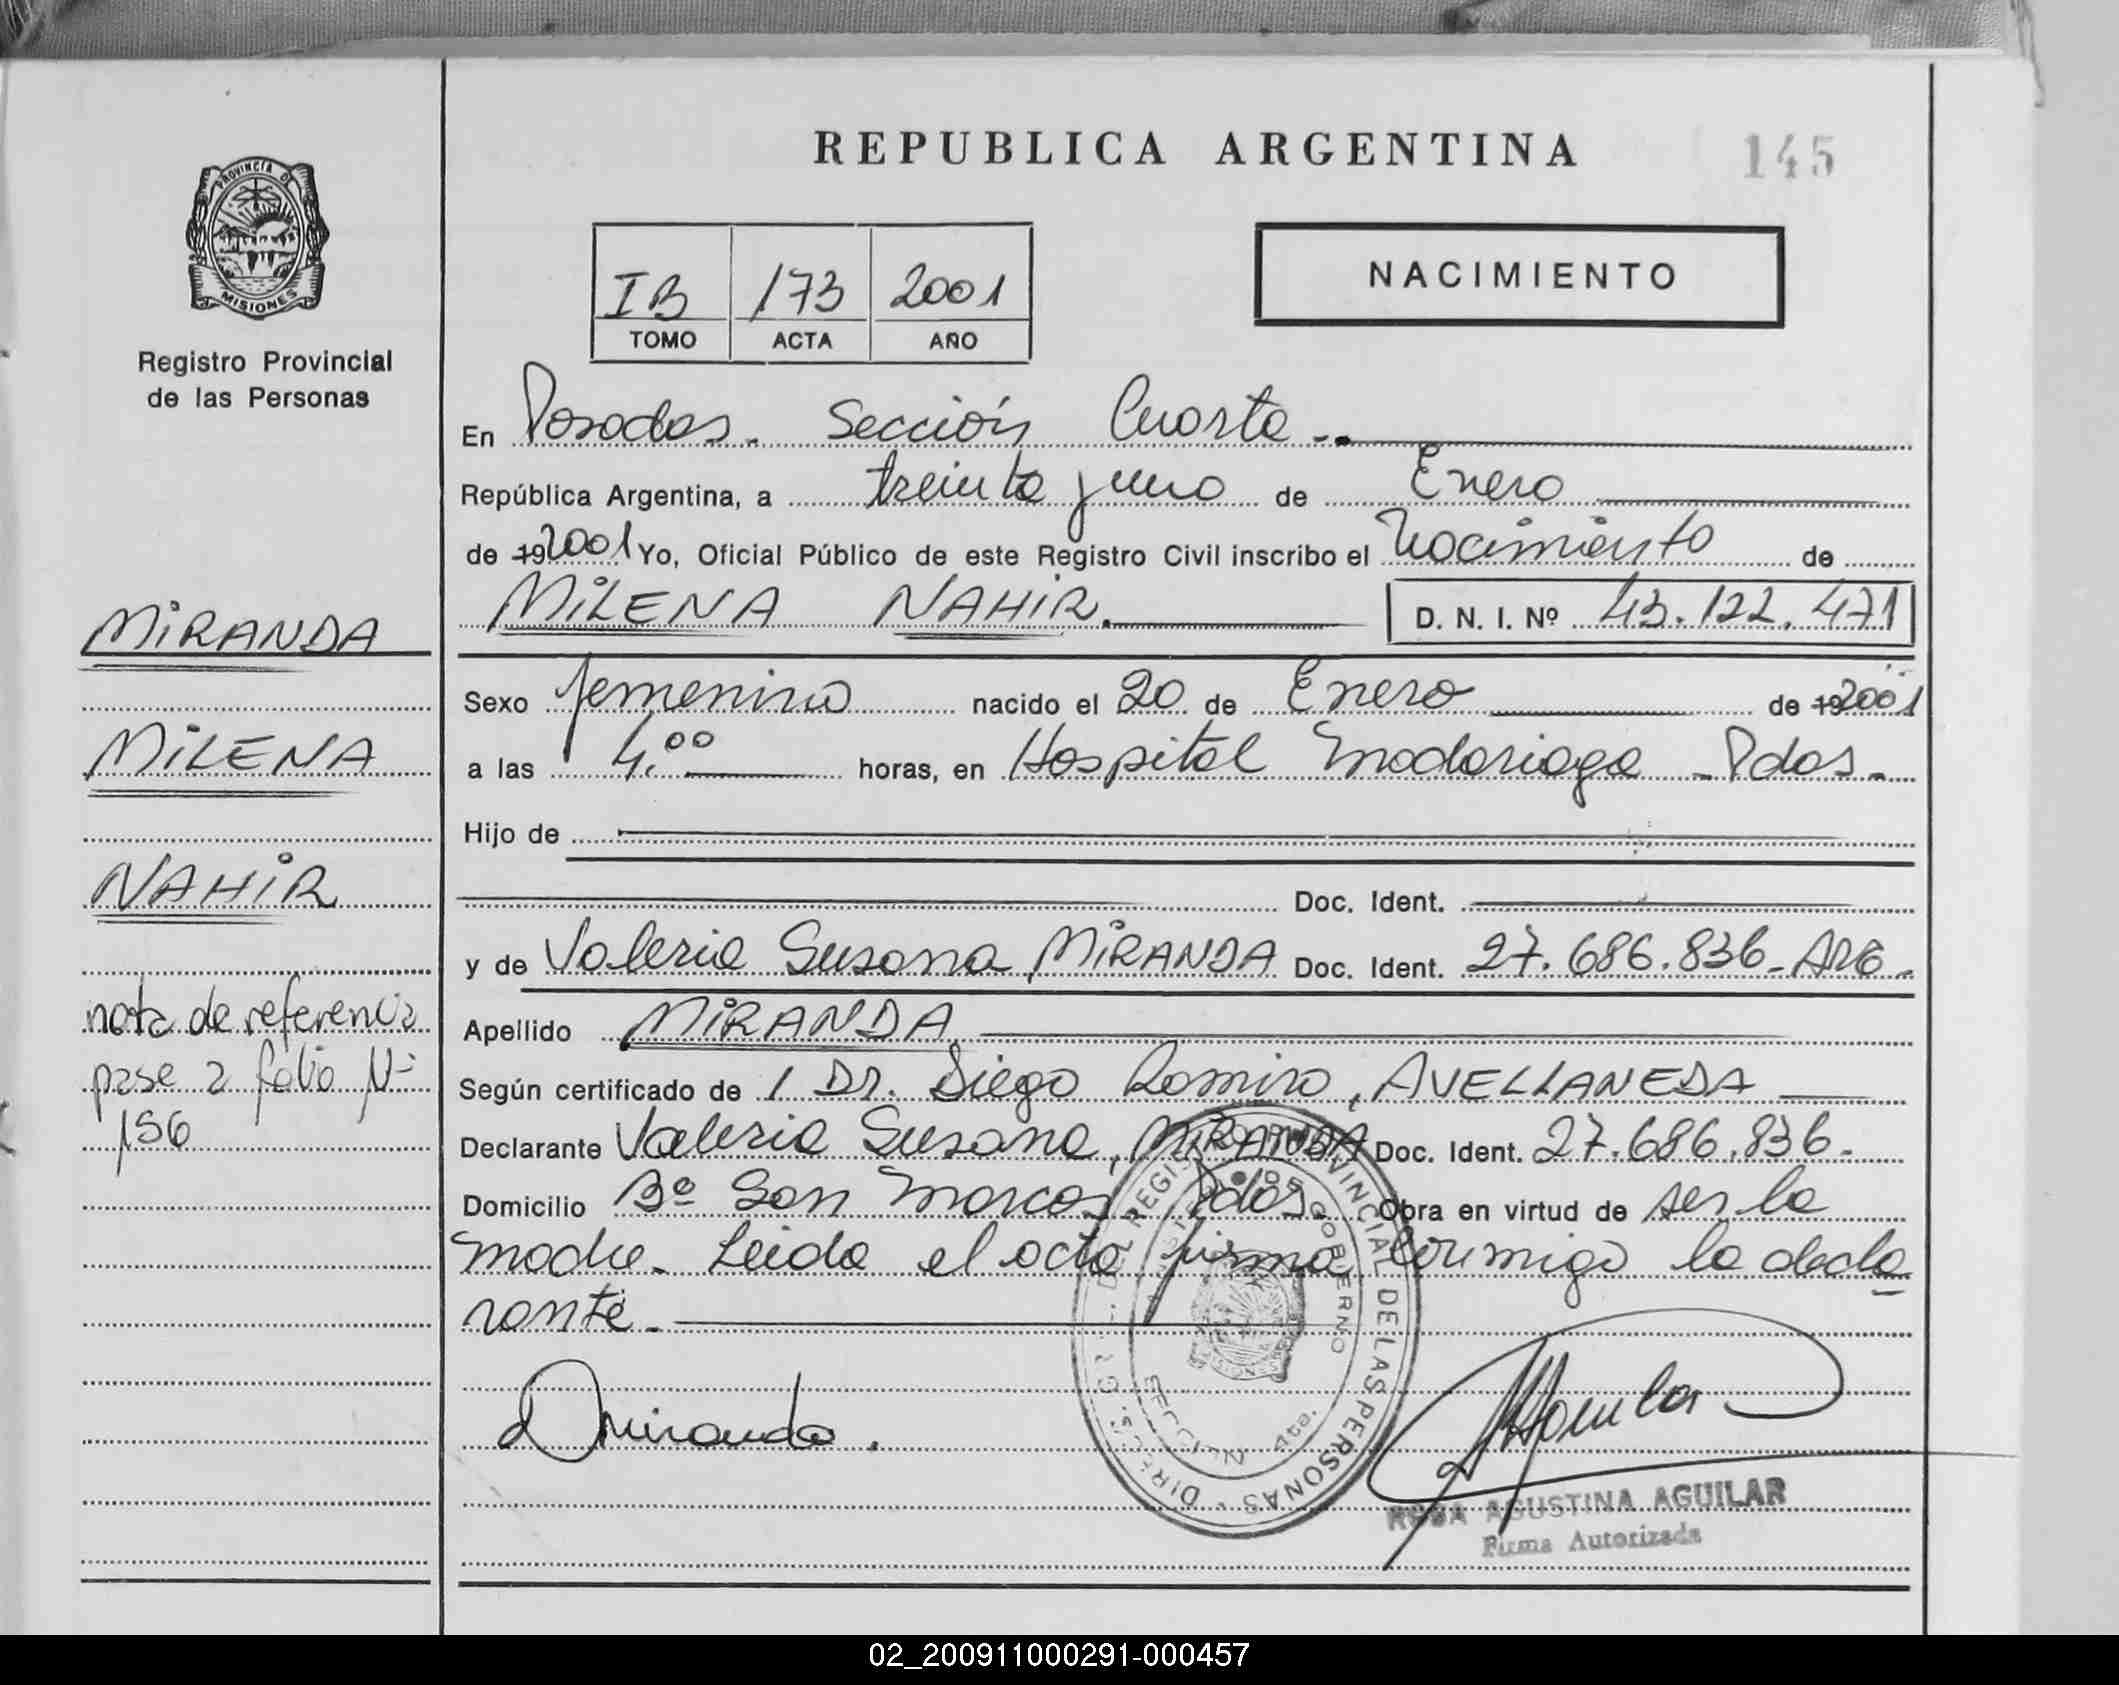 REPUBLICA ARGENTINA
145
PROVINCIA DE
MISIONES
Registro Provincial
de las Personas
IB 173 2001
TOMO ACTA AÑO
NACIMIENTO
En Posadas. Sección Cuarta.-
República Argentina, a treinta y uno de Enero
de 19 2001 Yo, Oficial Público de este Registro Civil inscribo el Nacimiento de
MiLENA NAHiR. D. N. I. Nº 43.122.471
Sexo femenino nacido el 20 de Enero de 19 2001
a las 4.00 horas, en Hospital Madariaga - Pdas.-
Hijo de
Doc. Ident.
y de Valeria Susana MiRANDA Doc. Ident. 27.686.836- ARG.
Apellido MiRANDA
Según certificado de 1 Dr. Diego Ramiro, AVELLANEDA
Declarante Valeria Susana, MiRANDA Doc. Ident. 27.686.836-
Domicilio Bº San Marcos Pdas. Obra en virtud de ser la
madre. Leida el acta firma conmigo la decla
rante.-
MiRANDA
MiLENA
NAHiR
nota de referencia
pase a folio Nº
156
Miranda.
Aguilar
DIREC. GRAL. DEL REGISTRO PROVINCIAL DE LAS PERSONAS
GOBIERNO
SECCION 4ta.
MISIONES
ROSA AGUSTINA AGUILAR
Firma Autorizada
02_200911000291-000457